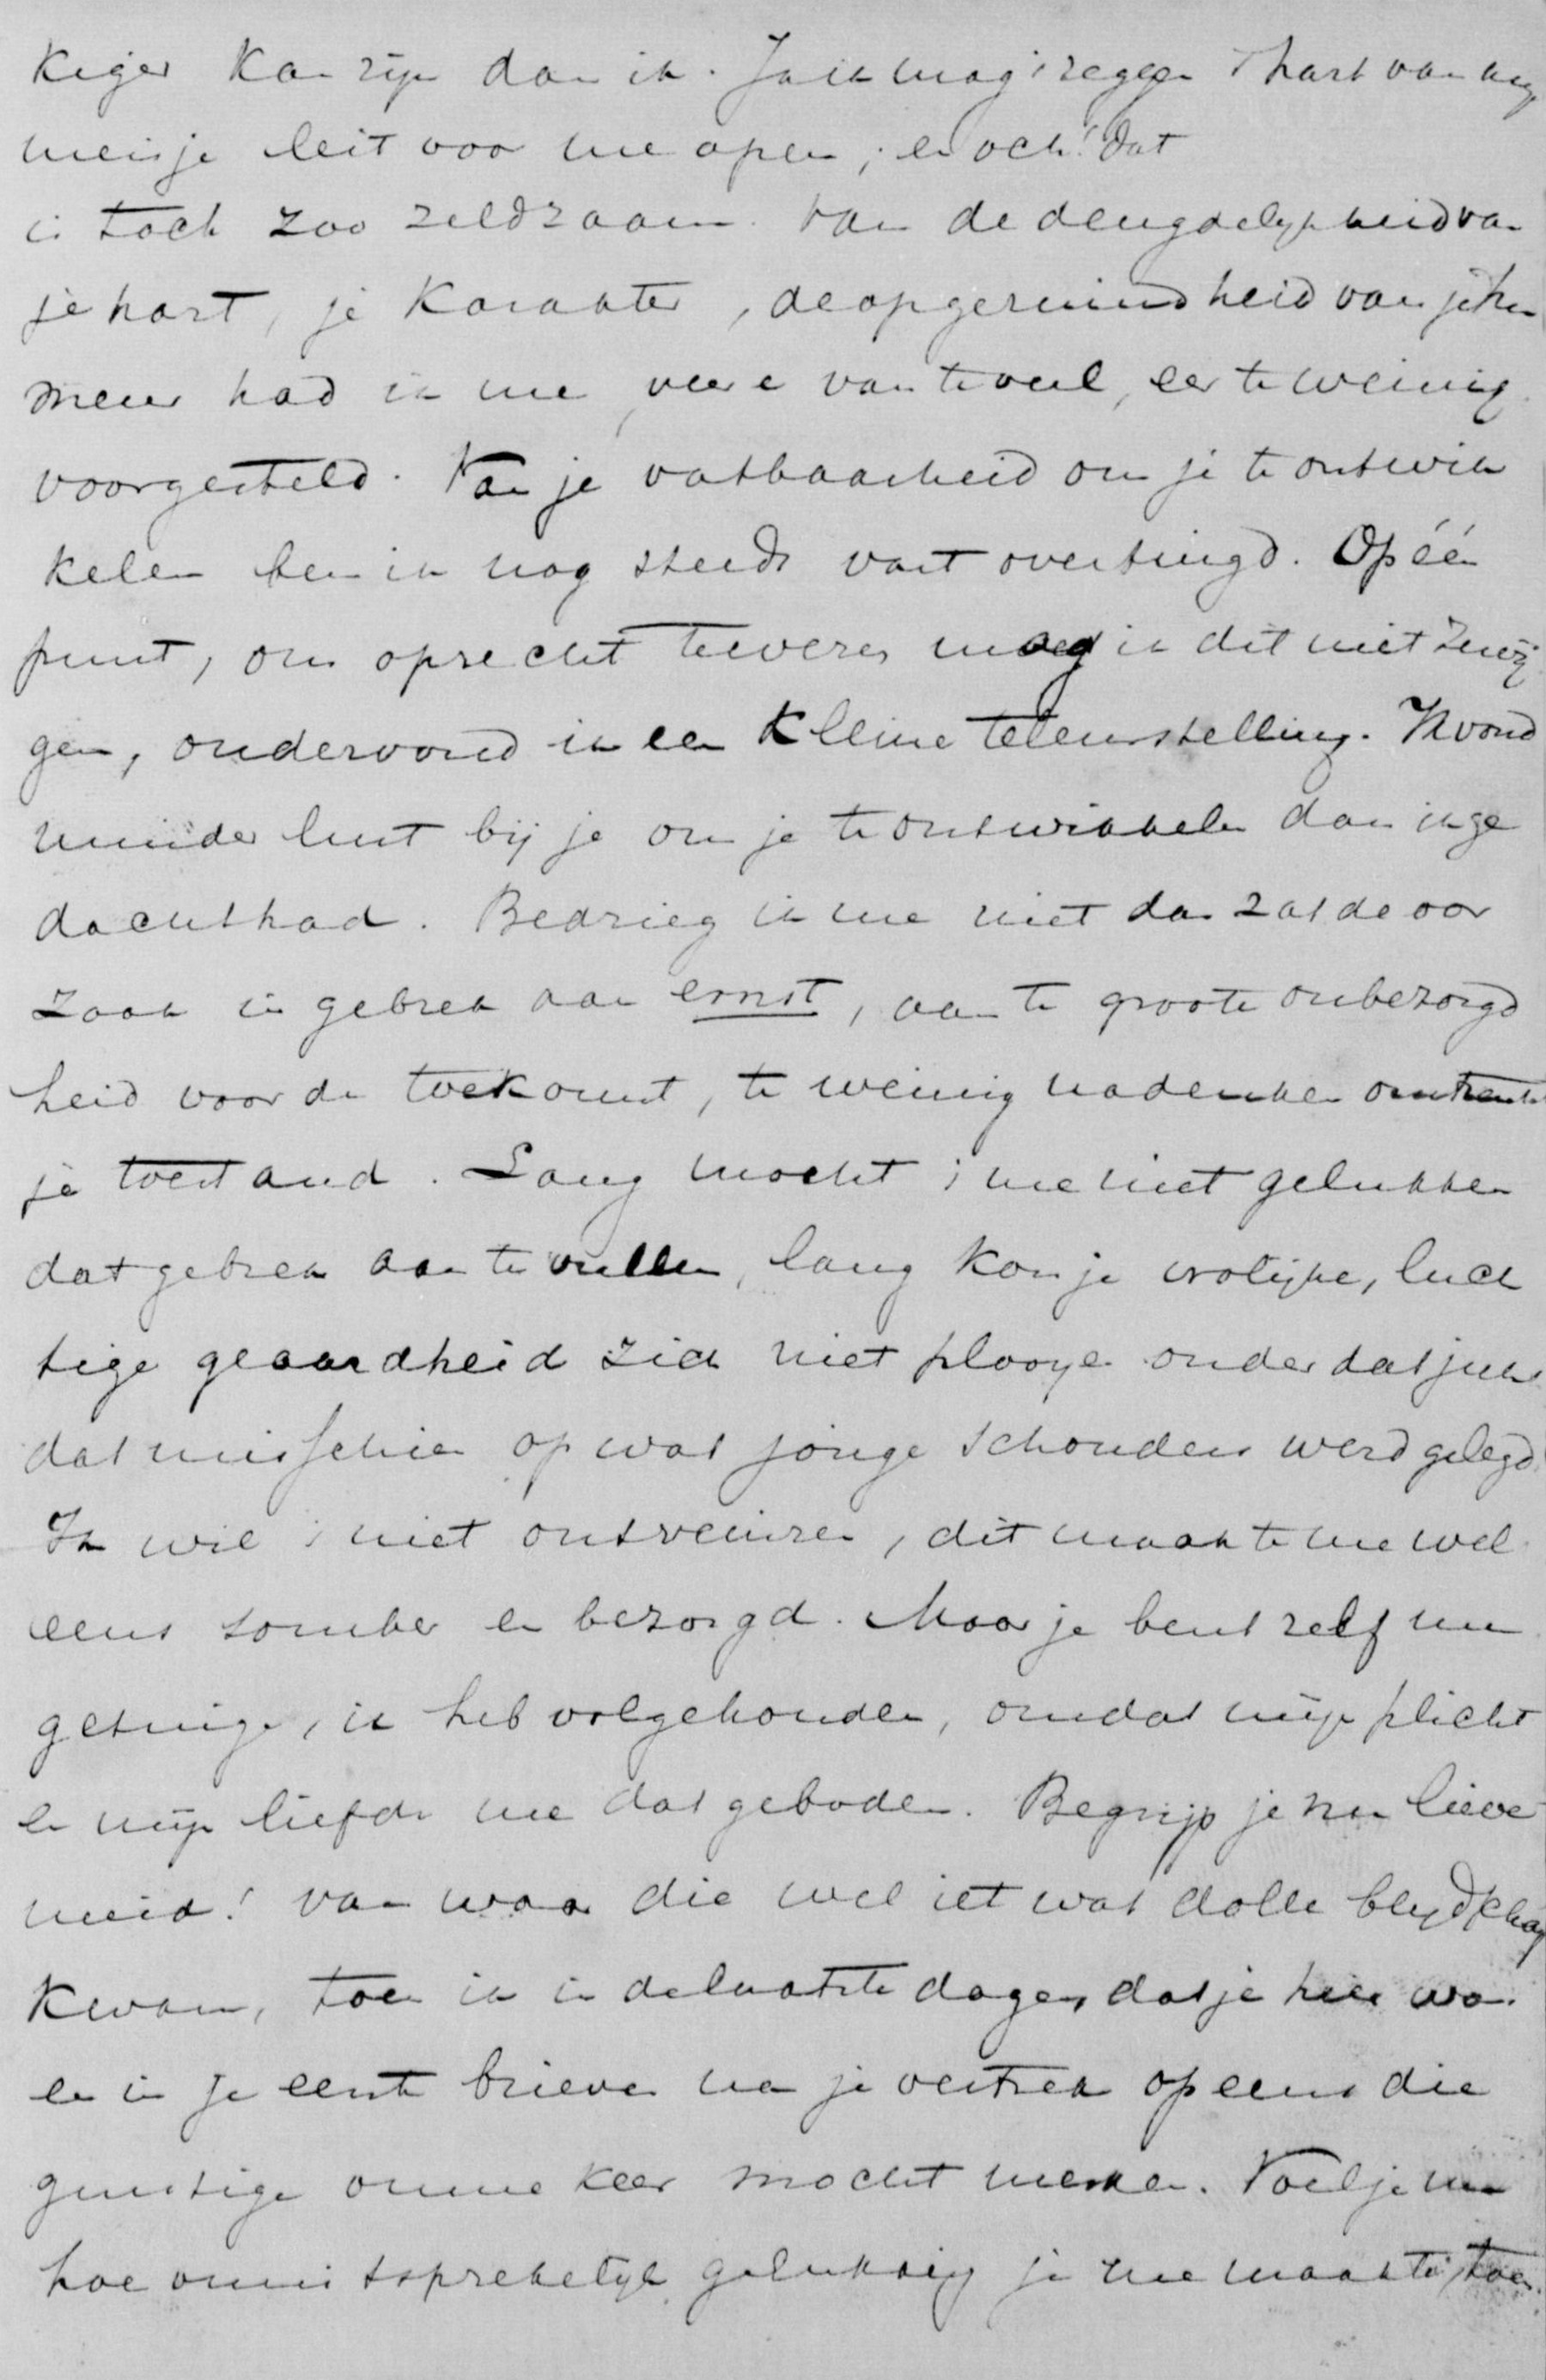 kiger kan zijn dan ik. Ja ik mag 't zeggen 't hart van mijn
meisje leit voor me open; en och! dat
is toch zoo zeldzaam. Van de deugdelijkheid van
je hart, je karakter, de opgeruimdheid van je hu
meur had ik me, veere van te veel, eer te weinig
voorgesteld. Van je vatbaarheid om je te ontwik
kelen ben ik nog steeds vast overtuigd. Op één
punt, om oprecht te wezen mag ik dit niet zwij
gen, ondervond ik een kleine teleurstelling. Ik vond
minder lust bij je om je te ontwikkelen dan ik ge
dacht had. Bedrieg ik me niet dan zat de oor
zaak in gebrek aan ernst, aan te groote onbezorgd
heid voor de toekomst, te weinig nadenken omtrent
je toestand. Lang mocht 't me niet gelukken
dat gebrek aan te vullen, lang kon je vrolijke, luch
tige geaardheid zich niet plooyen onder dat juk
dat misschien op wat jonge schouders werd gelegd.
Ik wil 't niet ontveinzen, dit maakte me wel
eens somber en bezorgd. Maar je bent zelf mn
getuige, ik heb volgehouden, omdat mijn plicht
en mijn liefde me dat geboden. Begrijp je nu lieve
meid! van waar die wel iet wat dolle blydschap
kwam, toen ik in de laatste dagen dat je hier was
en in je eerste brieven na je vertrek opeens die
gunstige omme keer mocht merken. Voel je nu
hoe onuitsprekelyk gelukkig je me maakte, toen